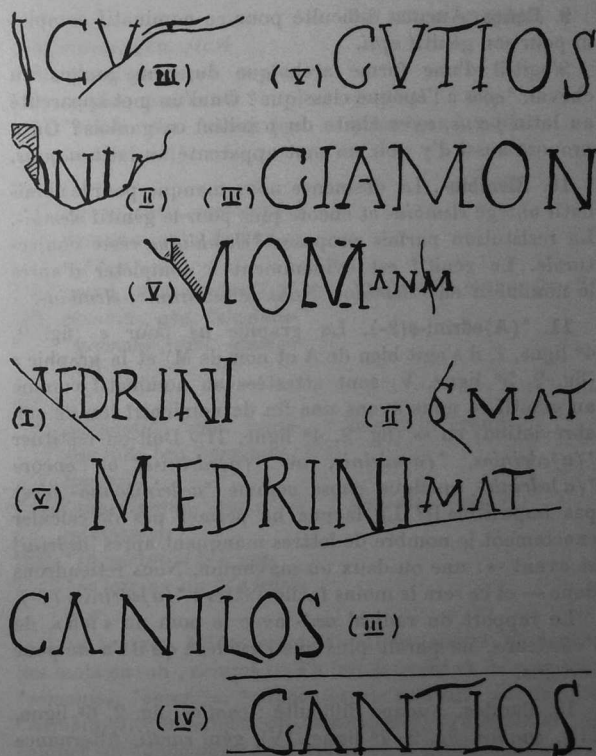 ICV (III) (V) GVTIOS
NIA (II) (III) GIAMON
(V) ANM
(I) EDRINI (II) MAT
(V) MEDRINI MAT
CANTLOS (III)
(IV) GANTLOS